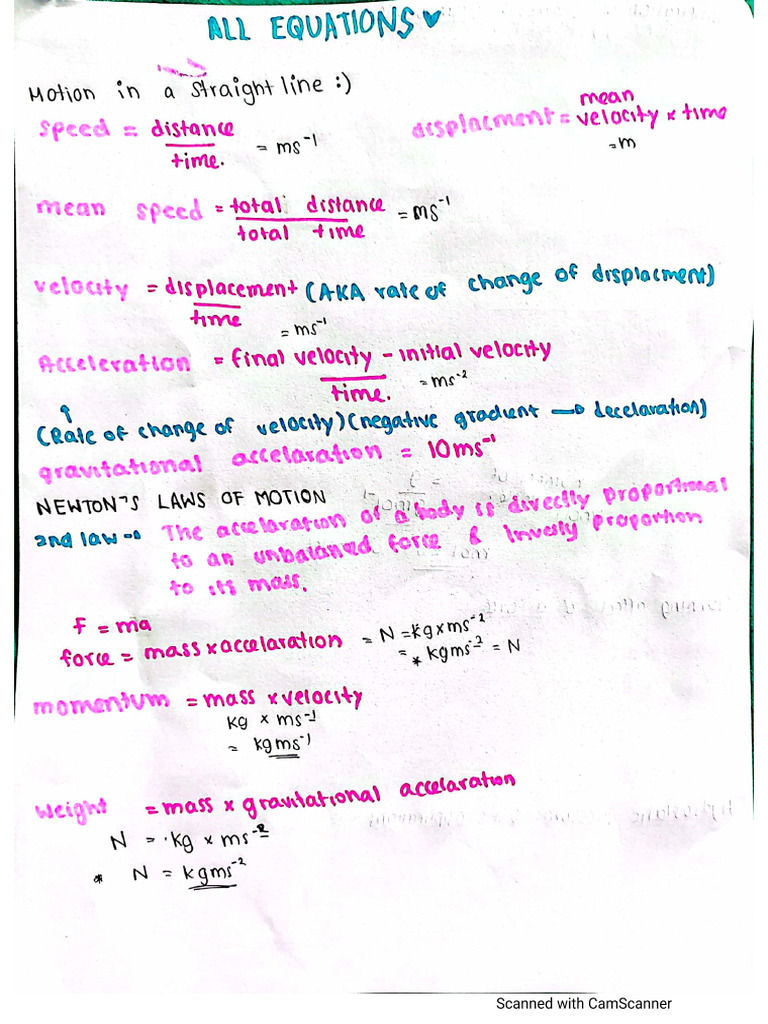 ALL EQUATIONS ♥
Motion in a straight line :)
speed = distance / time. = ms⁻¹
displacment = mean velocity x time
= m
mean speed = total distance / total time = ms⁻¹
velocity = displacement / time (AKA rate of change of displacment)
= ms⁻¹
Acceleration = final velocity - initial velocity / time. = ms⁻²
(Rate of change of velocity) (negative gradient → decelaration)
gravitational accelaration = 10ms⁻¹
NEWTON'S LAWS OF MOTION
2nd law → The accelaration of a body is directly proportional
to an unbalanced force & Inversly proportion
to its mass.
f = ma
force = mass x accelaration = N = kg x ms⁻²
= * kgms⁻² = N
momentum = mass x velocity
kg x ms⁻¹
= kgms⁻¹
Weight = mass x gravitational accelaration
N = kg x ms⁻²
* N = kgms⁻²
Scanned with CamScanner